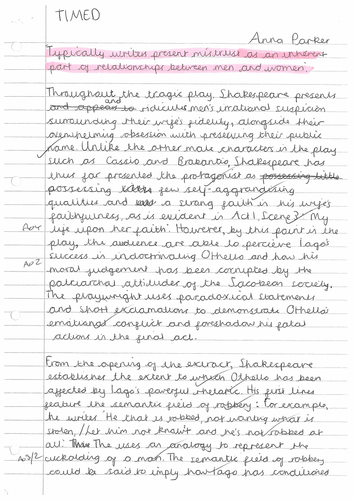 TIMED
Anna Parker
Typically writers present mistrust as an inherent
part of relationships between men and women.
Throughout the tragic play, Shakespeare presents
and appears to and ridicules men's irrational suspicion
surrounding their wife's fidelity, alongside their
overwhelming obsession with preserving their public
name. Unlike the other male characters in the play
such as Cassio and Brabantio, Shakespeare has
thus far presented the protagonist as possessing little
possessing few self-aggrandising
qualities and a strong faith in his wife's
faithfulness, as is evident in Act 1, Scene 3: 'My
life upon her faith'. However, by this point in the
play, the audience are able to perceive Iago's
AO2
success in indoctrinating Othello and how his
moral judgement has been corrupted by the
patriarchal attitudes of the Jacobean society.
The playwright uses paradoxical statements
and short exclamations to demonstrate Othello's
emotional conflict and foreshadow his fatal
actions in the final act.
From the opening of the extract, Shakespeare
establishes the extent to which Othello has been
affected by Iago's powerful rhetoric. His first lines
feature the semantic field of robbery: For example,
he writes 'He that is robbed, not wanting what is
stolen, // Let him not know't and he's not robbed at
all'. The uses as analogy to represent the
cuckolding of a man. The semantic field of robbery
could be said to imply how Iago has conditioned